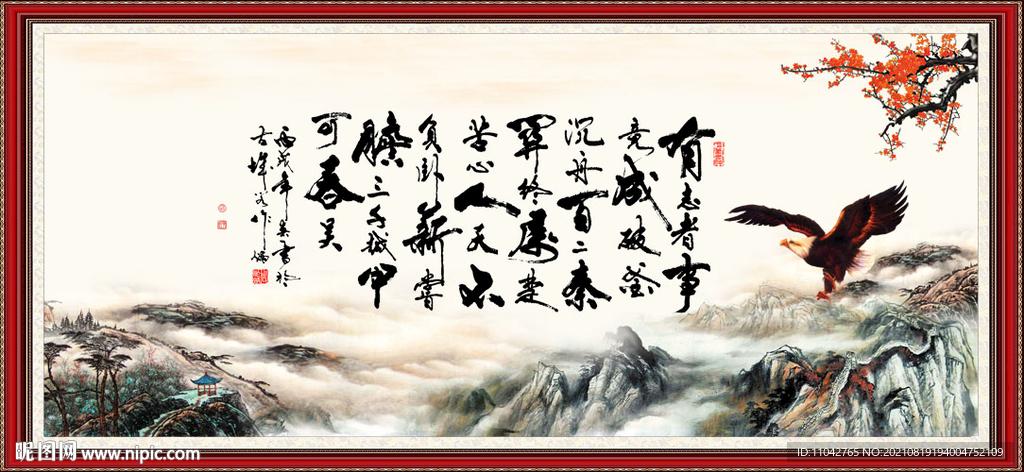 有志者事
竟成破釜
沉舟百二秦
關終屬楚
苦心人天不
負卧薪嘗
膽三千越甲
可吞吴
丙戌年書於
昵图网 www.nipic.com
ID:11042765 NO:20210819194004752109